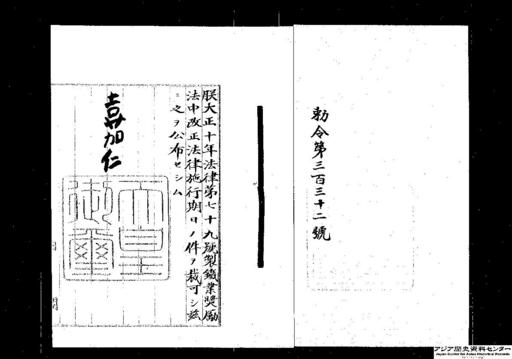 勅令第三百三十二號
朕大正十年法律第七十九號製鐵業奬勵
法中改正法律施行期日ノ件ヲ裁可シ茲
ニ之ヲ公布セシム
嘉仁
天皇
御璽
アジア歴史資料センター
Japan Center for Asian Historical Records